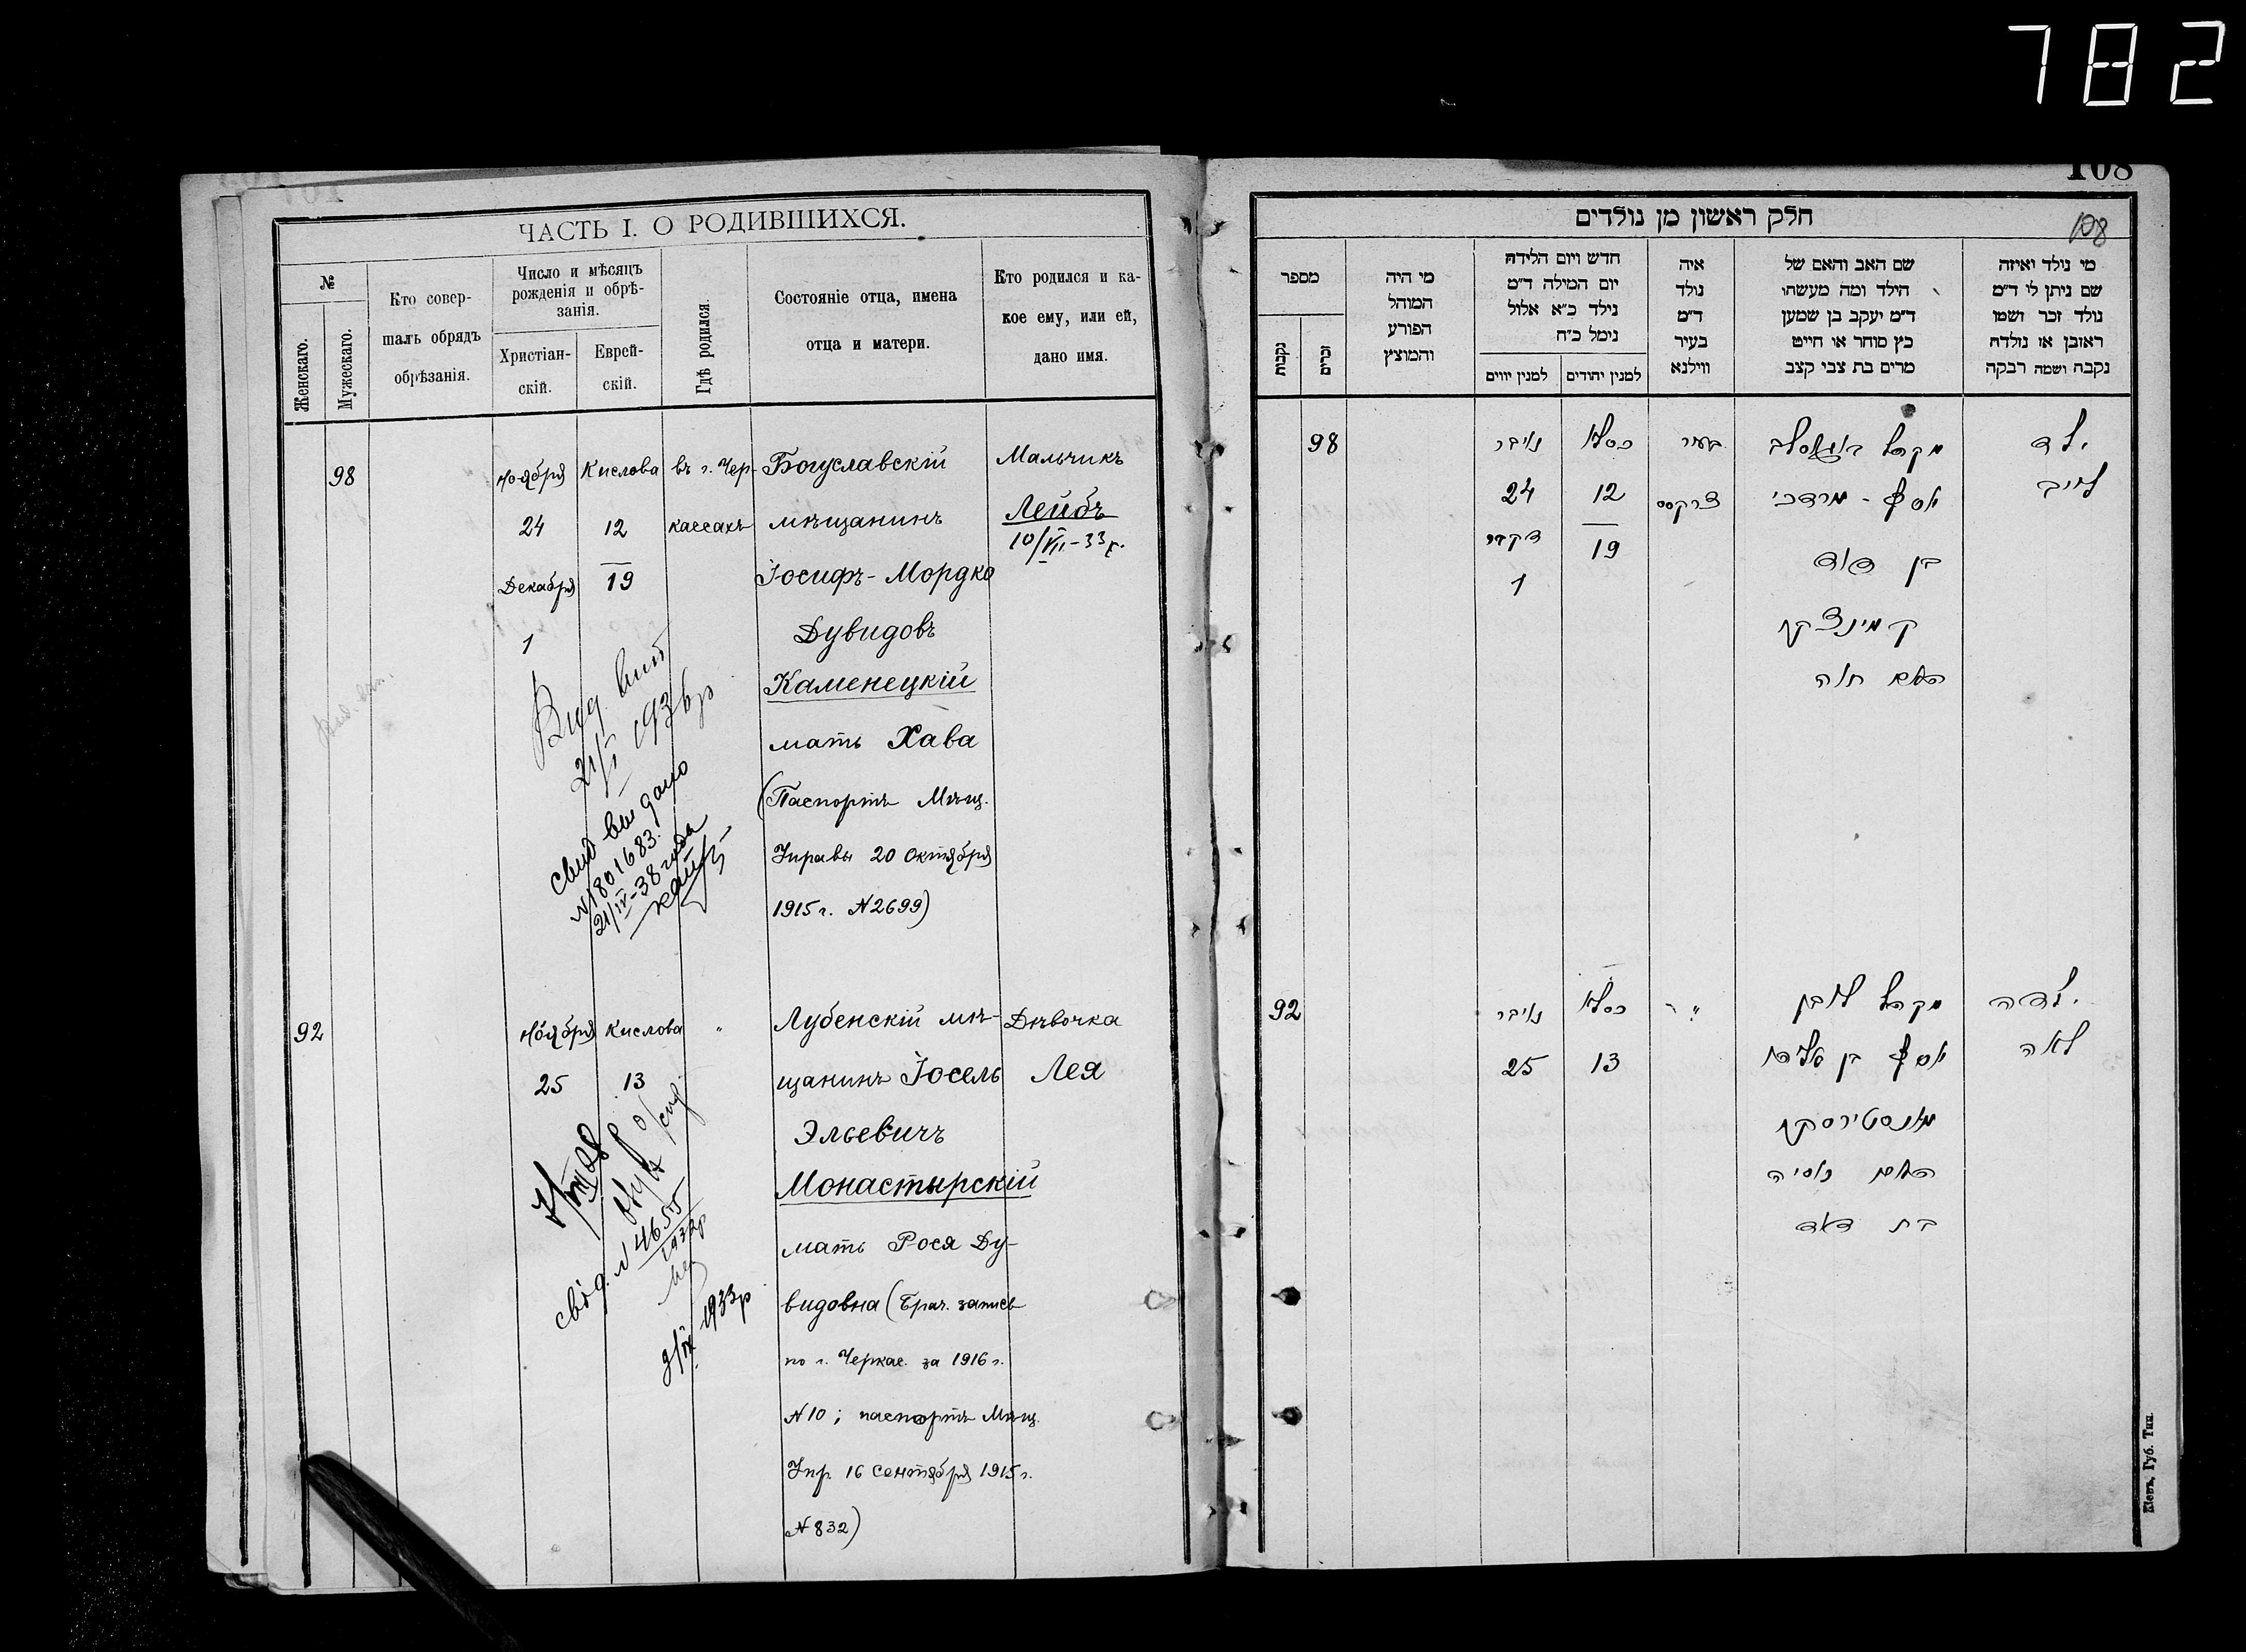 782
ЧАСТЬ I. О РОДИВШИХСЯ.
№
Женскаго.
Мужескаго.
Кто совер-
шалъ обрядъ
обрѣзанія.
Число и мѣсяцъ
рожденія и обрѣ-
занія.
Христіан-
скій.
Еврей-
скій.
Гдѣ родился.
Состояніе отца, имена
отца и матери.
Кто родился и ка-
кое ему, или ей,
дано имя.
98
Ноября
24
Декабря
1
Кислова
12
19
въ г. Чер-
кассахъ
Богуславскій
мѣщанинъ
Іосифъ-Мордко
Дувидовъ
Каменецкій
мать Хава
(Паспортъ Мѣщ.
Управы 20 Октября
1915 г. №2699)
Мальчикъ
Лейбъ
10/VII-33 г.
21/I 1936р
свид выдано
№801683.
21/IV-38 года
92
Ноября
25
Кислова
13
"
Лубенскій мѣ-
щанинъ Іосель
Эльевичъ
Монастырскій
мать Рося Ду-
видовна (Брач. запись
по г. Черкас. за 1916 г.
№10; паспортъ Мѣщ.
Упр. 16 Сентября 1915 г.
№832)
Дѣвочка
Лея
свід. № 4655
1933р
108
חלק ראשון מן נולדים
108
מספר
נקבות
זכרים
מי היה
המוהל
הפורע
והמוצץ
חדש ויום הלידה
יום המילה ד"מ
נילד כ"א אלול
נימל כ"ח
למנין יווים
למנין יהודים
איה
נולד
ד"מ
בעיר
ווילנא
שם האב והאם של
הילד ומה מעשהו
ד"מ יעקב בן שמען
כץ סוחר או חייט
מרים בת צבי קצב
מי נולד ואיזה
שם ניתן לו ד"מ
נולד זכר ושמו
ראובן או נולדה
נקבה ושמה רבקה
98
נויבר
24
דקבר
1
כסלו
12
19
בעיר
צרקסס
מקהל באגוסלב
יוסף - מרדכי
בן דוד
קמינצקי
האם חוה
ילד
לייב
92
נויבר
25
כסלו
13
"
מקהל לובן
יוסף בן
מאנסטירסקי
האם
בת דוד
ילדה
לאה
Кіевъ, Губ. Тип.